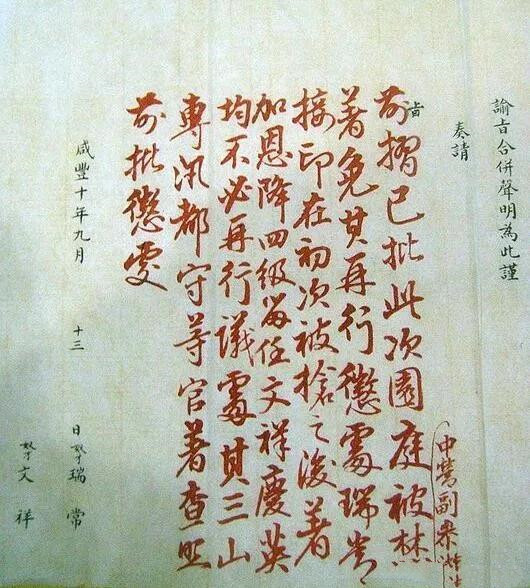 諭旨合併聲明為此謹
奏請
旨
前摺已批此次園庭被焚
著免其再行懲處瑞常
接印在初次被搶之後著
加恩降四級留任文祥慶英
均不必再行議處其三山
專汛都守等官著查照
前批懲處
咸豐十年九月 十三 日奴才瑞常
奴才文祥